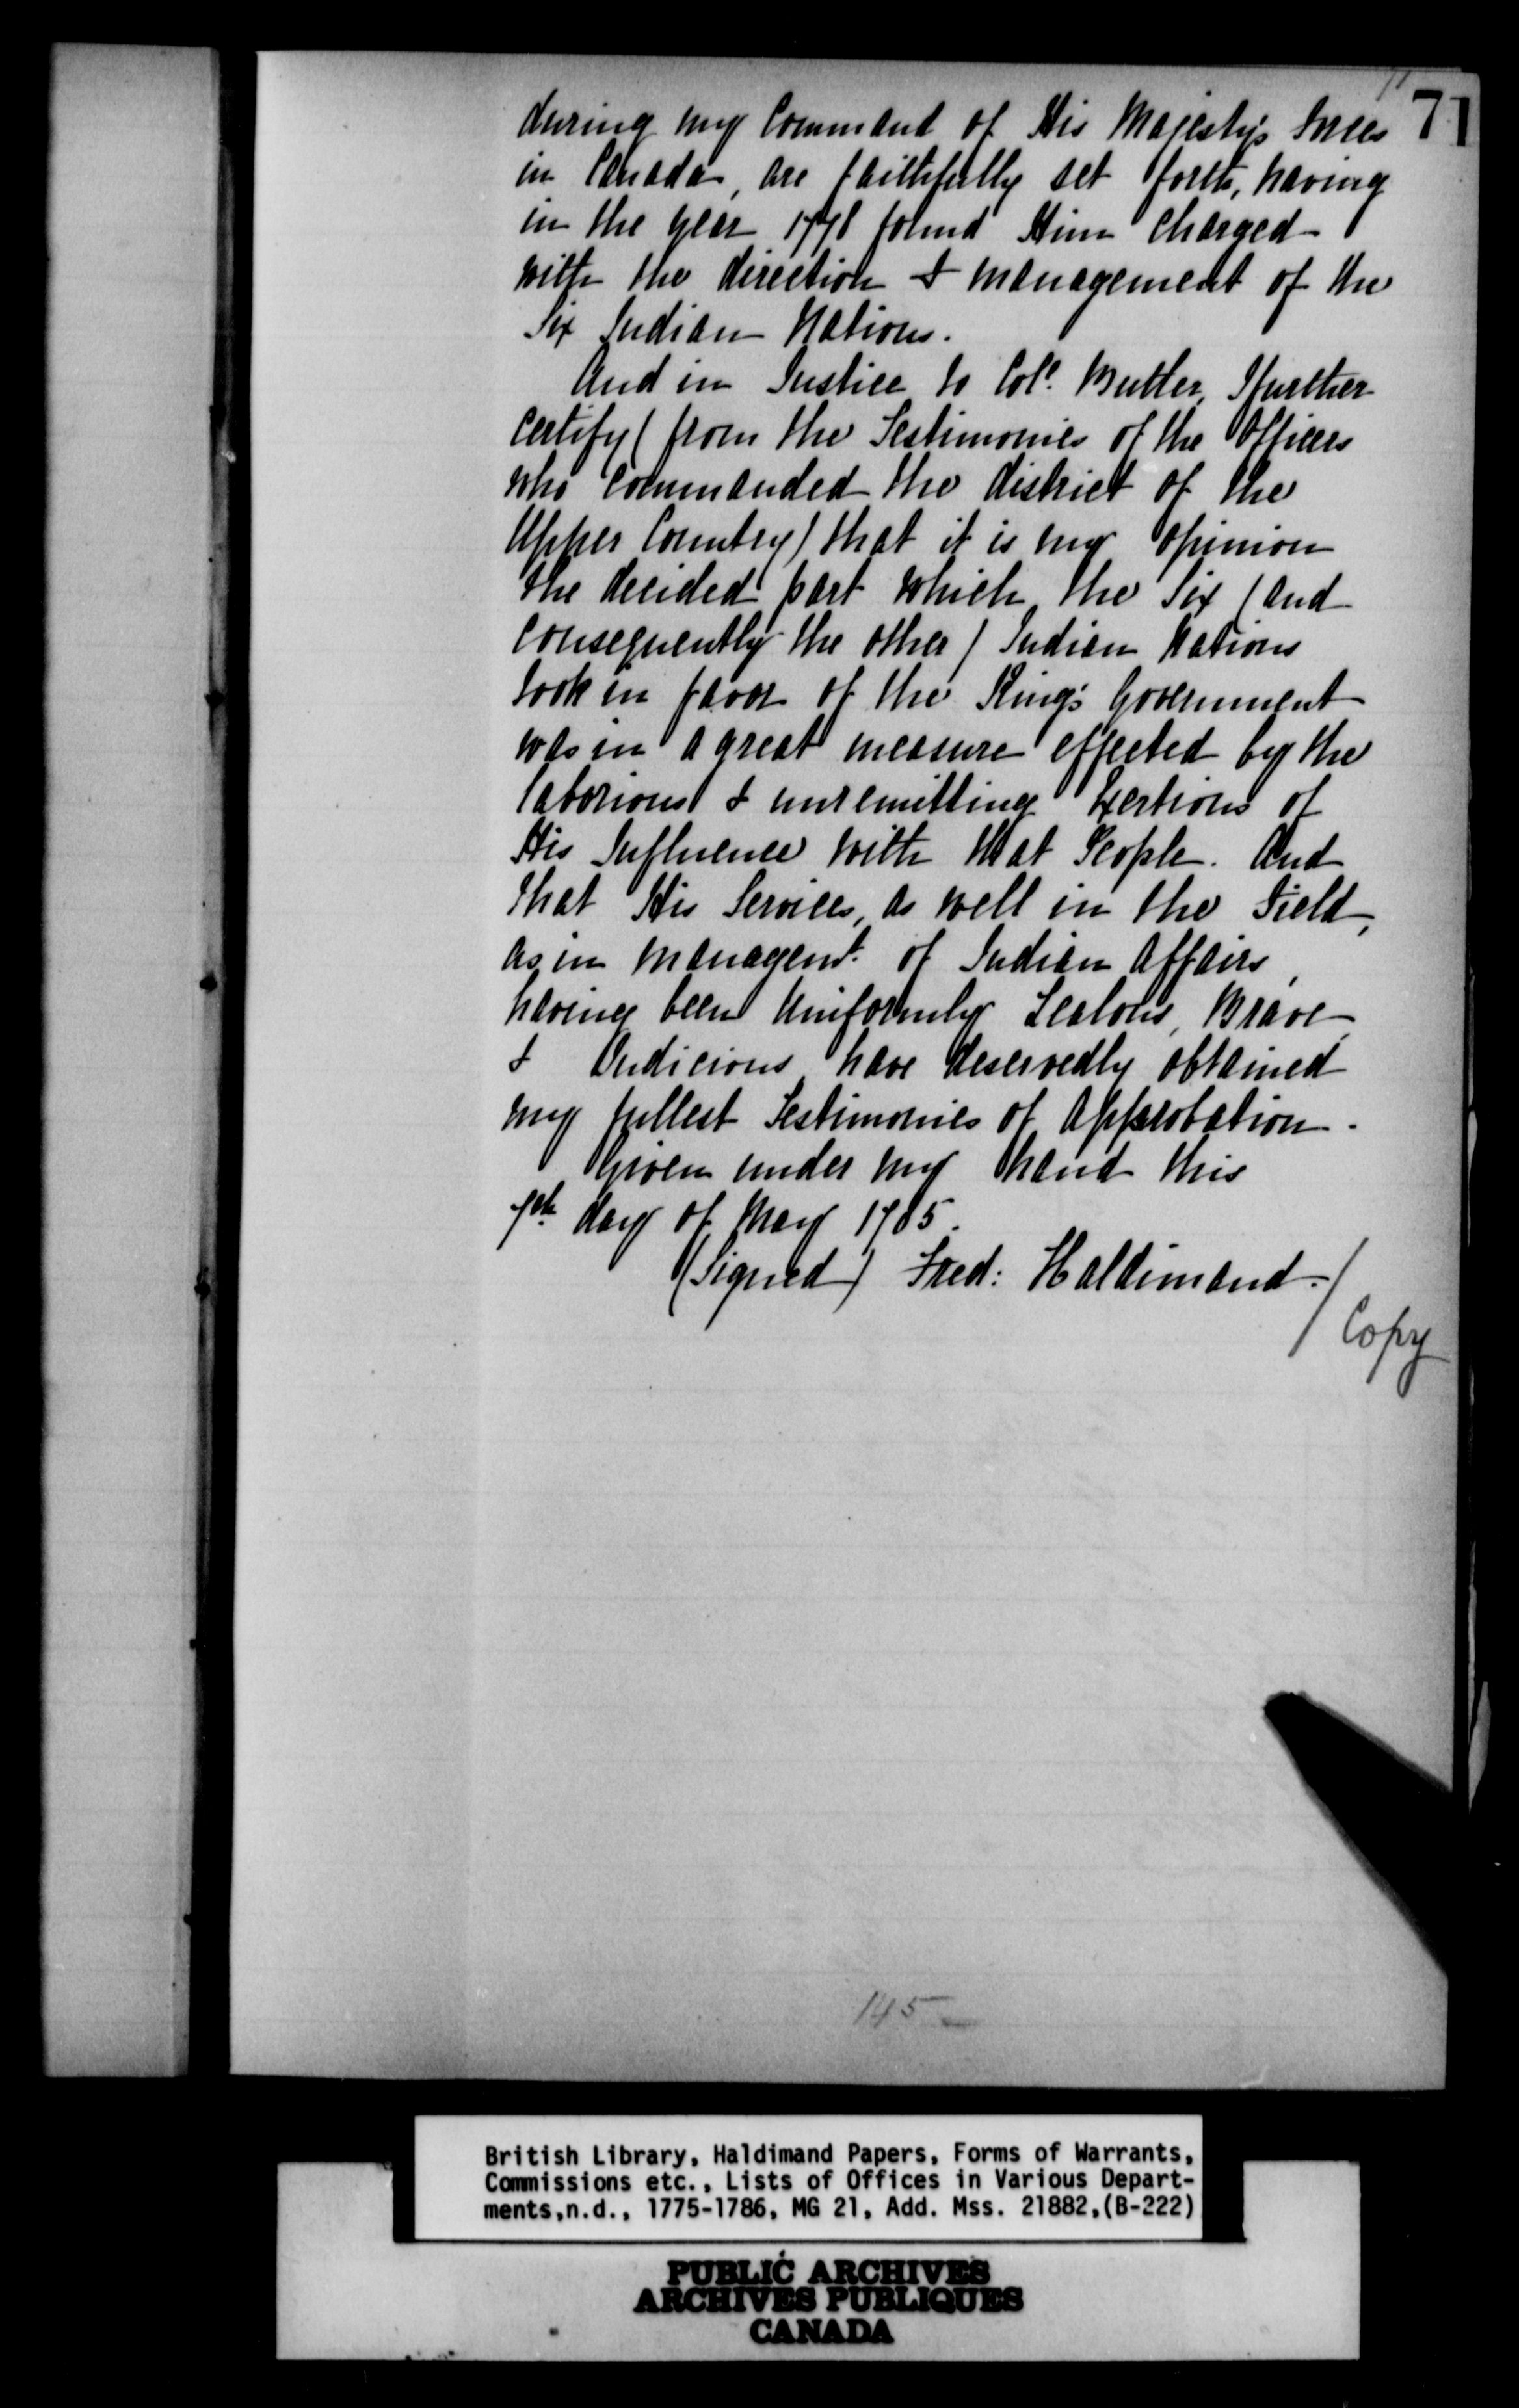 71
during my Command of His Majesty's Forces
in Canada, are faithfully set forth, having
in the year 1778 found Him charged
with the direction & management of the
Six Indian Nations.
And in Justice to Colº. Butler, I further
certify (from the Testimonies of the Officers
who commanded the district of the
Upper Country) that it is my opinion
the decided part which the Six (and
consequently the other) Indian Nations
took in favor of the King's Government
was in a great measure effected by the
laborious & unremitting Exertions of
His Influence with that People. And
that His Services, as well in the Field,
as in managemt. of Indian Affairs,
having been Uniformly Zealous, Brave,
& Judicious have deservedly obtained
my fullest Testimonies of Approbation.
Given under my hand this
7th day of May 1785.
(Signed) Fred: Haldimand./
/ Copy
145
British Library, Haldimand Papers, Forms of Warrants,
Commissions etc., Lists of Offices in Various Depart-
ments,n.d., 1775-1786, MG 21, Add. Mss. 21882,(B-222)
PUBLIC ARCHIVES
ARCHIVES PUBLIQUES
CANADA